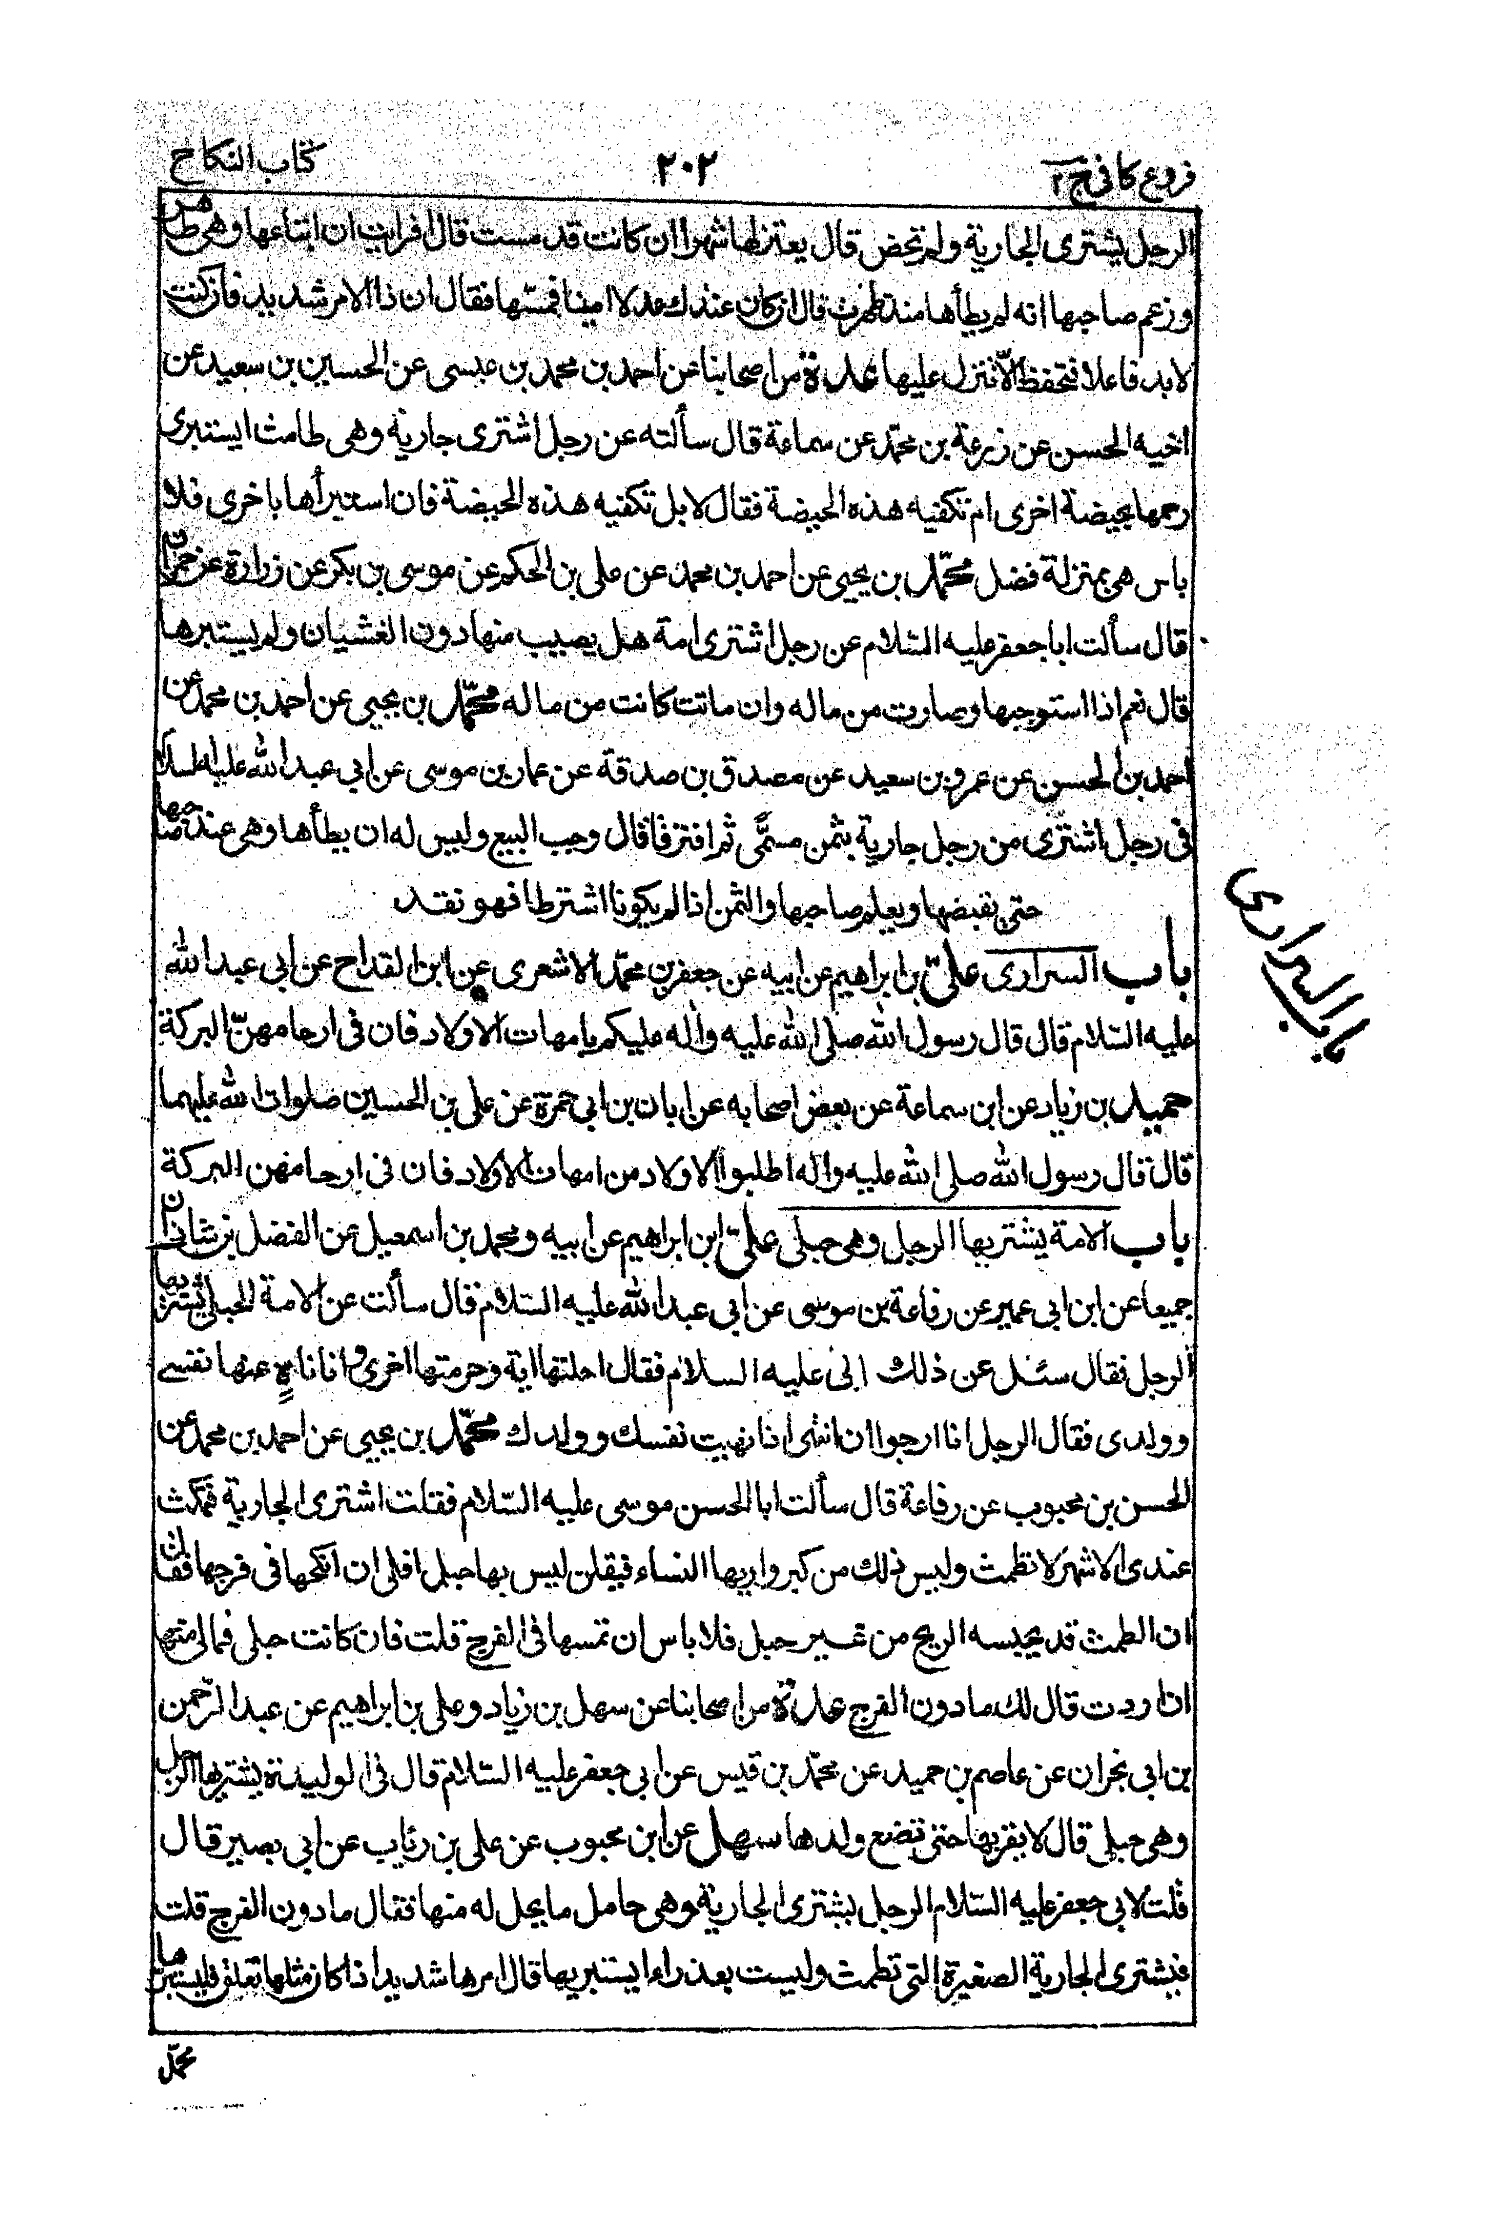 فروع كافي ج ٢
٢٠٢
كتاب النكاح
الرجل يشترى الجارية ولم تحض قال يعتزلها شهرا ان كانت قد مست قال افرايت ان ابتاعها وهى طاهر
وزعم صاحبها انه لم يطأها منذ طهرت قال ان كان عندك عدلا امينا فمسّها فقال ان ذا الامر شديد فان كنت
لا بد فاعلا فتحفظ الّا تنزل عليها عدة من اصحابنا عن احمد بن محمد بن عيسى عن الحسين بن سعيد عن
اخيه الحسن عن زرعة بن محمّد عن سماعة قال سألته عن رجل اشترى جارية وهى طامث ايستبرئ
رحمها بحيضة اخرى ام تكفيه هذه الحيضة فقال لا بل تكفيه هذه الحيضة فان استبرأها باخرى فلا
باس هى بمنزلة فضل محمّد بن يحيى عن احمد بن محمد عن على بن الحكم عن موسى بن بكر عن زرارة عن حمران
قال سألت ابا جعفر عليه السّلام عن رجل اشترى امة هل يصيب منها دون الغشيان ولم يستبرها
قال نعم اذا استوجبها وصارت من ماله وان ماتت كانت من ماله محمّد بن يحيى عن احمد بن محمد عن
احمد بن الحسن عن عمرو بن سعيد عن مصدق بن صدقة عن عمار بن موسى عن ابي عبد الله عليه السلام
فى رجل اشترى من رجل جارية بثمن مسمّى ثم افترقا قال وجب البيع وليس له ان يطأها وهى عند صاحبها
حتى يقبضها ويعلم صاحبها والثمن اذا لم يكونا اشترطا فهو نقد
باب السرارى علىّ بن ابراهيم عن ابيه عن جعفر بن محمّد الاشعرى عن ابن القداح عن ابى عبد الله
عليه السّلام قال قال رسول الله صلى الله عليه وآله عليكم بامهات الاولاد فان فى ارحامهنّ البركة
باب السرارى
حميد بن زياد عن ابن سماعة عن بعض اصحابه عن ابان بن ابى حمزة عن على بن الحسين صلوات الله عليهما
قال قال رسول الله صلى الله عليه وآله اطلبوا الاولاد من امهات الاولاد فان فى ارحامهن البركة
باب الامة يشتريها الرجل وهى حبلى علىّ ابن ابراهيم عن ابيه ومحمد بن اسمعيل عن الفضل بن شاذان
جميعا عن ابن ابى عمير عن رفاعة بن موسى عن ابى عبد الله عليه السّلام قال سألت عن الامة الحبلى يشتريها
الرجل فقال سئل عن ذلك ابى عليه السلام فقال احلتها اية وحرمتها اخرى وانا ناهٍ عنها نفسى
وولدى فقال الرجل انا ارجوا ان انتهى اذا نهيت نفسك وولدك محمّد بن يحيى عن احمد بن محمد عن
الحسن بن محبوب عن رفاعة قال سألت ابا الحسن موسى عليه السّلام فقلت اشترى الجارية فتمكث
عندى الاشهر لا تطمث وليس ذلك من كبر واريها النساء فيقلن ليس بها حبل افلى ان انكحها فى فرجها فقال
ان الطمث قد يحبسه الريح من غير حبل فلا باس ان تمسها فى الفرج قلت فان كانت حبلى فمالى منها
ان اردت قال لك ما دون الفرج عدة من اصحابنا عن سهل بن زياد وعلى بن ابراهيم عن عبد الرّحمن
بن ابى نجران عن عاصم بن حميد عن محمّد بن قيس عن ابى جعفر عليه السّلام قال فى الوليدة يشتريها الرجل
وهى حبلى قال لا يقربها حتى تضع ولدها سهل عن ابن محبوب عن على بن رئاب عن ابى بصير قال
قلت لابى جعفر عليه السّلام الرجل يشترى الجارية وهى حامل ما يحل له منها فقال ما دون الفرج قلت
فيشترى الجارية الصغيرة التى تطمث وليست بعذراء ايستبريها قال امرها شديد اذا كان مثلها تعلق فليستبرئها
محمّد